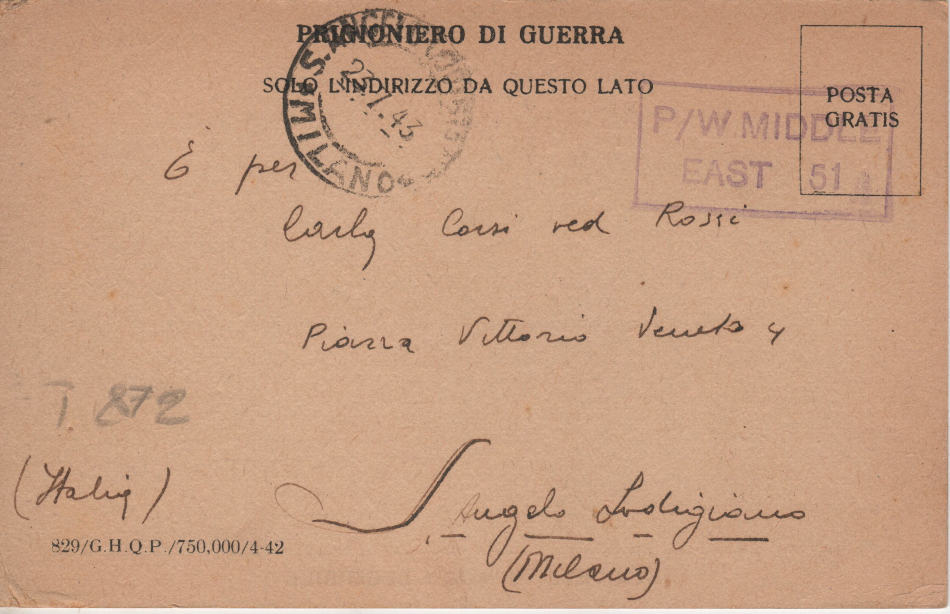 PRIGIONIERO DI GUERRA
SOLO L'INDIRIZZO DA QUESTO LATO
POSTA
GRATIS
S. ANGELO
MILANO
27.1.43
P/W MIDDLE
EAST 51
E per
Carla Corsi ved Rossi
Piazza Vittorio Veneto 4
T. 872
(Italia)
S. Angelo Lodigiano
(Milano)
829/G.H.Q.P./750,000/4-42